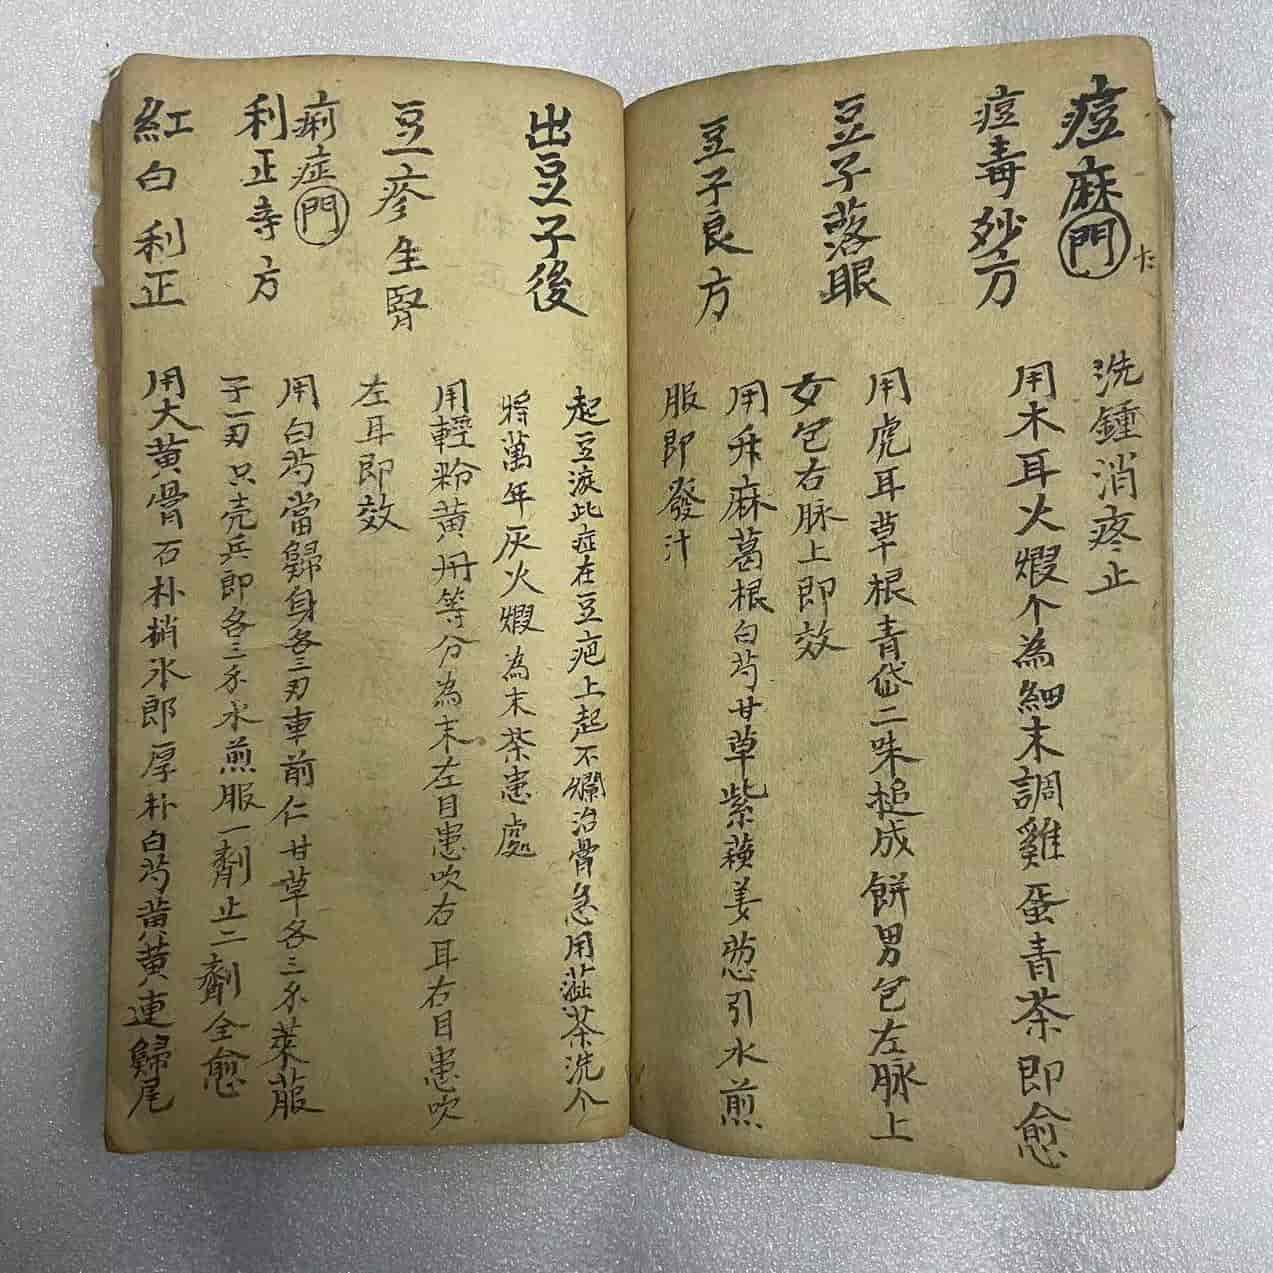 痘麻門
洗鍾消疼止
痘毒妙方
用木耳火煆个為細末調雞蛋青茶即愈
豆子落眼
用虎耳草根青袋二味槌成餅男包左脉上
女包右脉上即效
豆子良方
用升麻葛根白芍甘草紫蘓姜葱引水煎
服即發汁
出豆子後
起豆澁此症在豆疤上起不爛治骨急用茶洗个
將萬年灰火煆為末茶患處
豆疹生腎
用輕粉黃丹等分為末左目患吹右耳右目患吹
左耳即效
痢症門
利正寺方
用白芍當歸身各三刃車前仁甘草各三尒萊菔
子一刃只壳兵郎各三尒水煎服一劑止二劑全愈
紅白利正
用大黃骨石朴梢氷郎厚朴白芍黃連歸尾